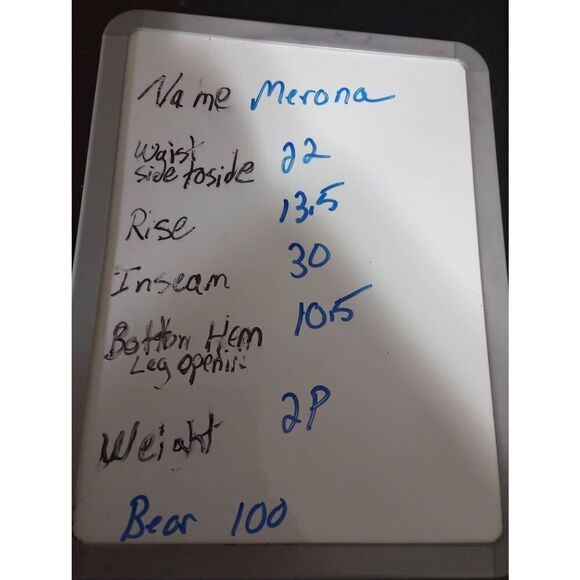 Name Merona
Waist
side to side 22
Rise 13.5
Inseam 30
Bottom Hem 10.5
Leg openin
Weight 2P
Bear 100